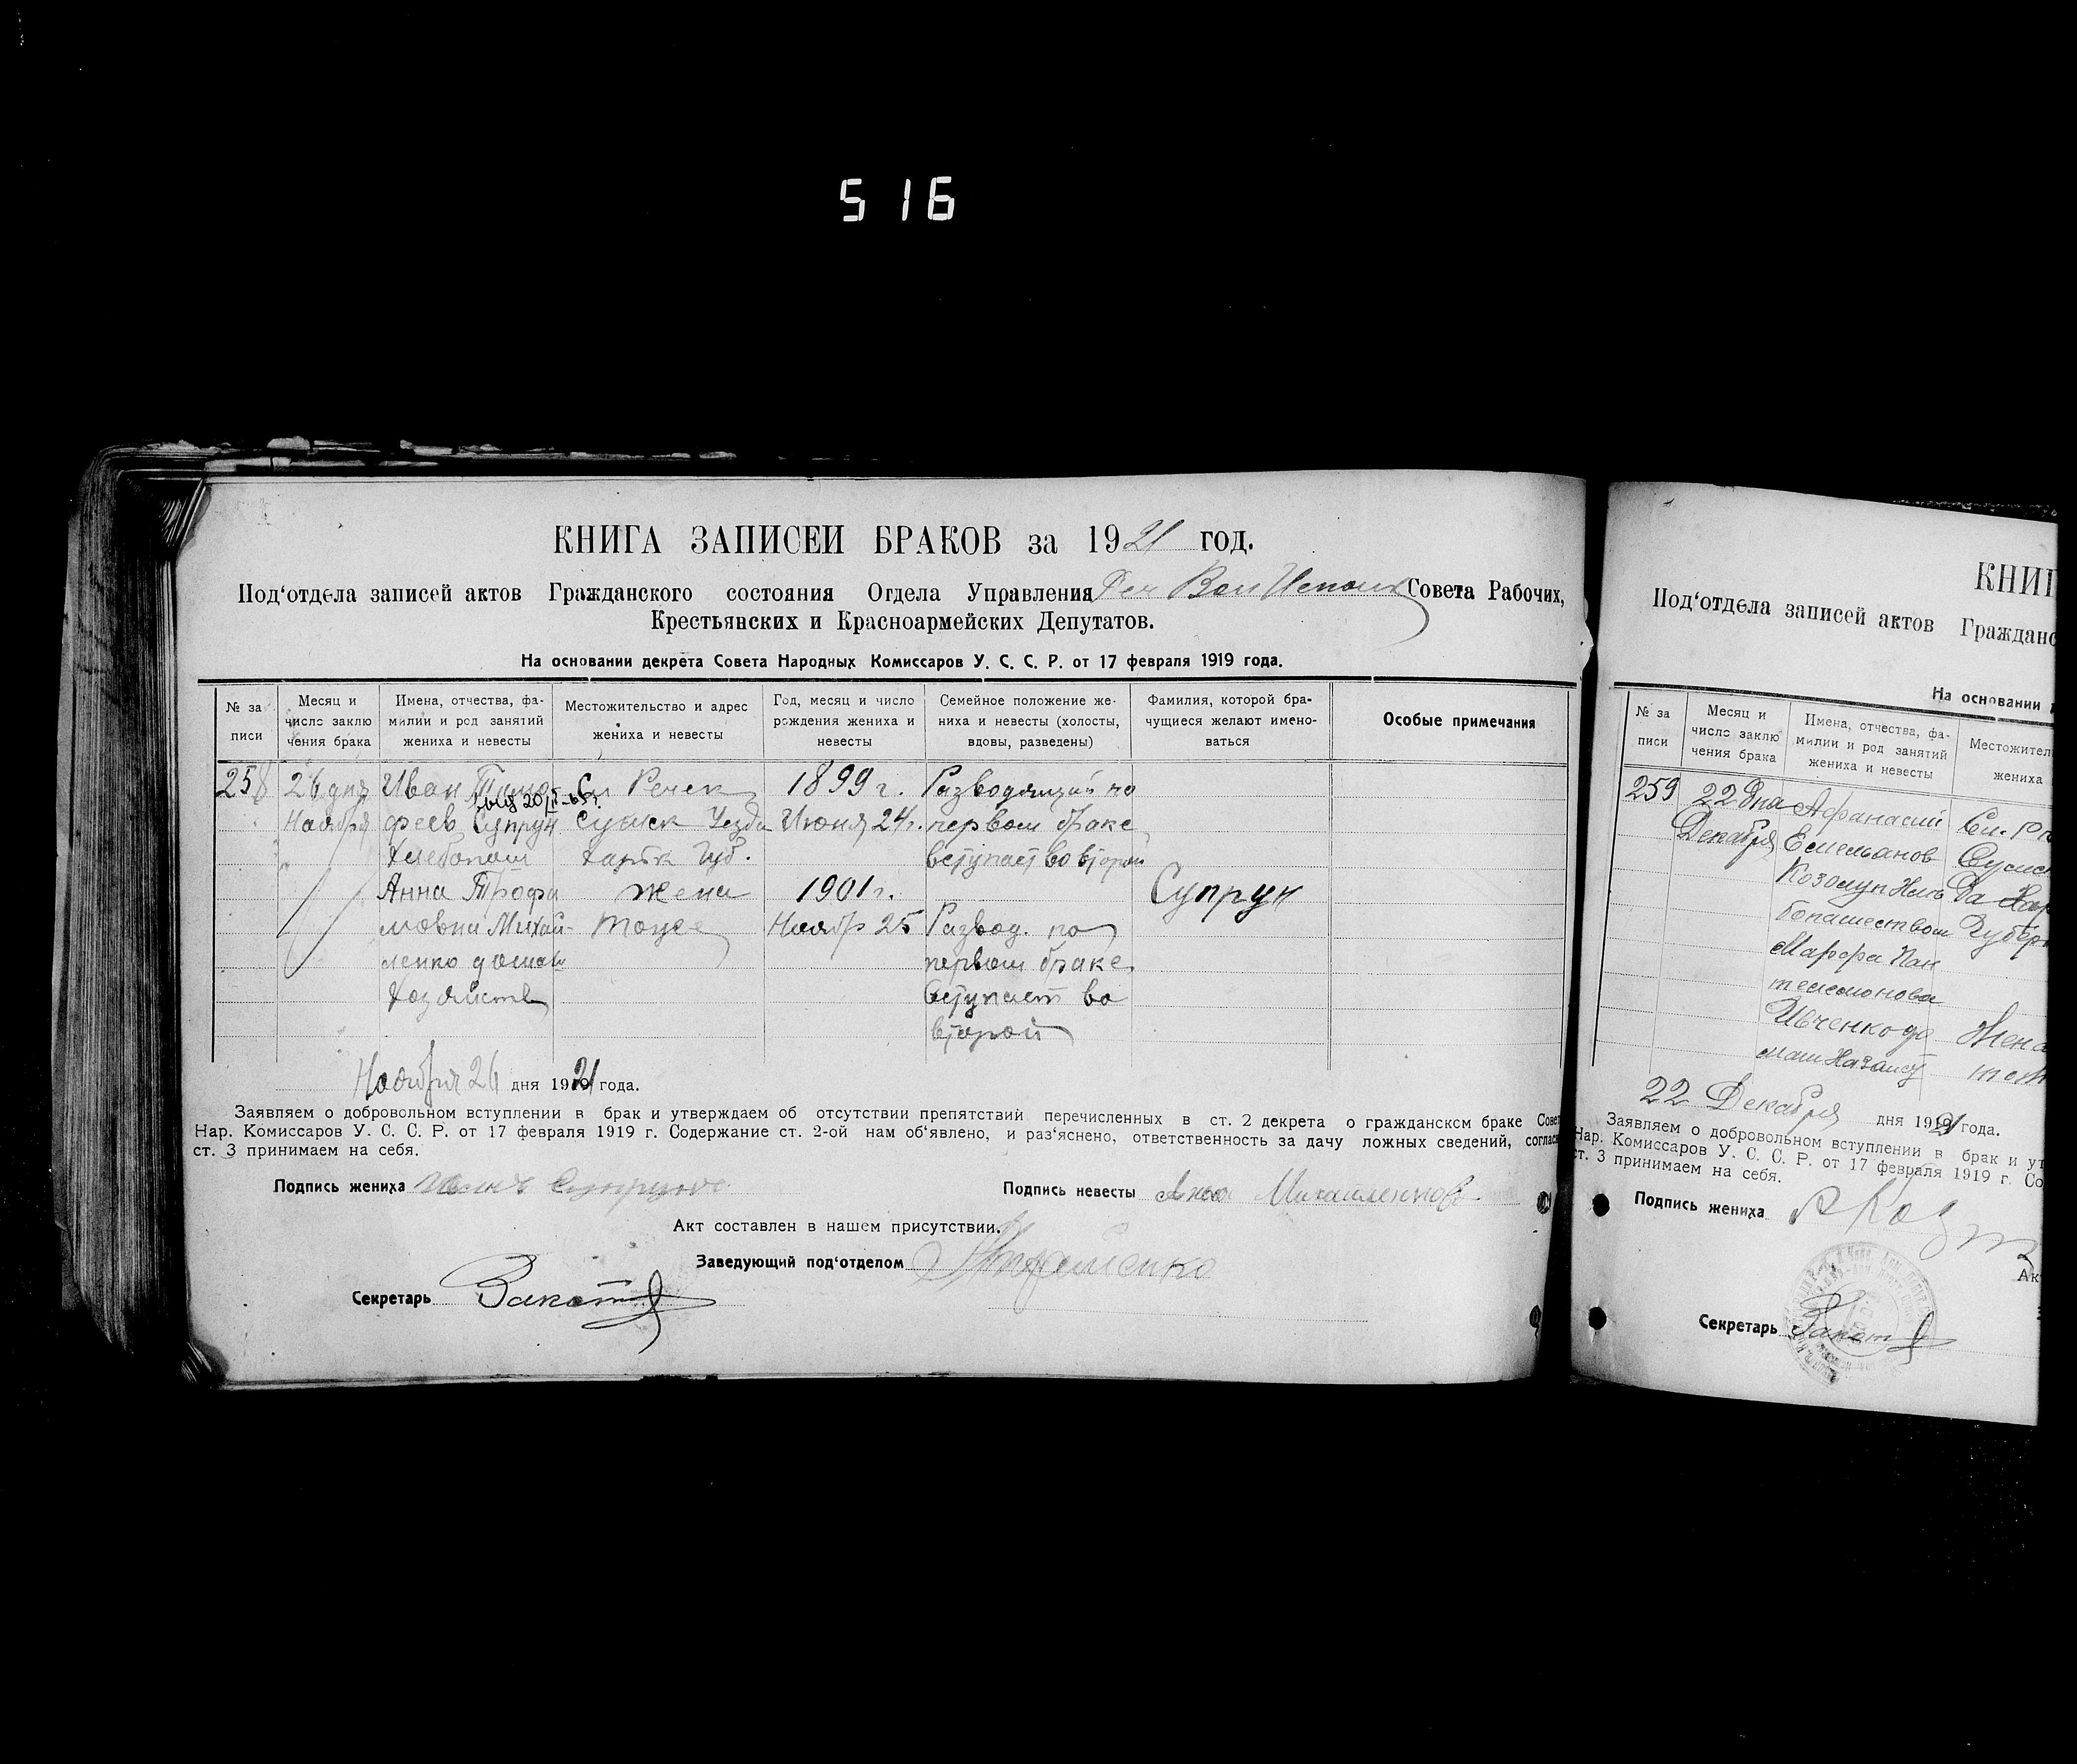 516
КНИГА ЗАПИСЕЙ БРАКОВ за 1921 год.
Под‘отдела записей актов Гражданского состояния Отдела Управления Реч Вол Исполк Совета Рабочих,
Крестьянских и Красноармейских Депутатов.
На основании декрета Совета Народных Комиссаров У. С. С. Р. от 17 февраля 1919 года.
№ за
писи
Месяц и
число заклю
чения брака
Имена, отчества, фа-
милии и род занятий
жениха и невесты
Местожительство и адрес
жениха и невесты
Год, месяц и число
рождения жениха и
невесты
Семейное положение же-
ниха и невесты (холосты,
вдовы, разведены)
Фамилия, которой бра-
чущиеся желают имено-
ваться
Особые примечания
258
26 дня
Ноября
Иван Тимо-
20/II-65г.
феев Супрун
Хлебопаш
Анна Трофи
мовна Михай-
ленко домаш
Хозяйств
Сл Речек
Сумск Уезда
Харьк Губ.
жена
тоже
1899 г.
Июня 24 г.
1901 г.
Ноябр 25
Разводящий по
первом браке
вступает во второй
Развод. по
первом браке
вступает во
второй
Супрун
Ноября 26 дня 1921 года.
Заявляем о добровольном вступлении в брак и утверждаем об отсутствии препятствий перечисленных в ст. 2 декрета о гражданском браке Совет
Нар. Комиссаров У. С. С. Р. от 17 февраля 1919 г. Содержание ст. 2-ой нам об‘явлено, и раз‘яснено, ответственность за дачу ложных сведений, соглас
ст. 3 принимаем на себя.
Подпись жениха Иванъ Супрунъ
Подпись невесты Анна Михайленкова
Акт составлен в нашем присутствии.
Заведующий под‘отделом
Секретарь
КНИГ
Под‘отдела записей актов Гражданс
На основании
№ за
писи
Месяц и
число заклю
чения брака
Имена, отчества, фа-
милии и род занятий
жениха и невесты
Местожител
жениха
259
22 Дня
Декабря
Афанасий
Емельянов
Козолуп Хле
бопашеством
Марфа Пан
телемонова
Ивченко до
маш Хазайст
Сл. Ре
Сумск
да Хар
Губер
Жена
тож
22 Декабря дня 1921 года.
Заявляем о добровольном вступлении в брак и ут
Нар. Комиссаров У. С. С. Р. от 17 февраля 1919 г. Со
ст. 3 принимаем на себя.
Подпись жениха
Ак
Секретарь